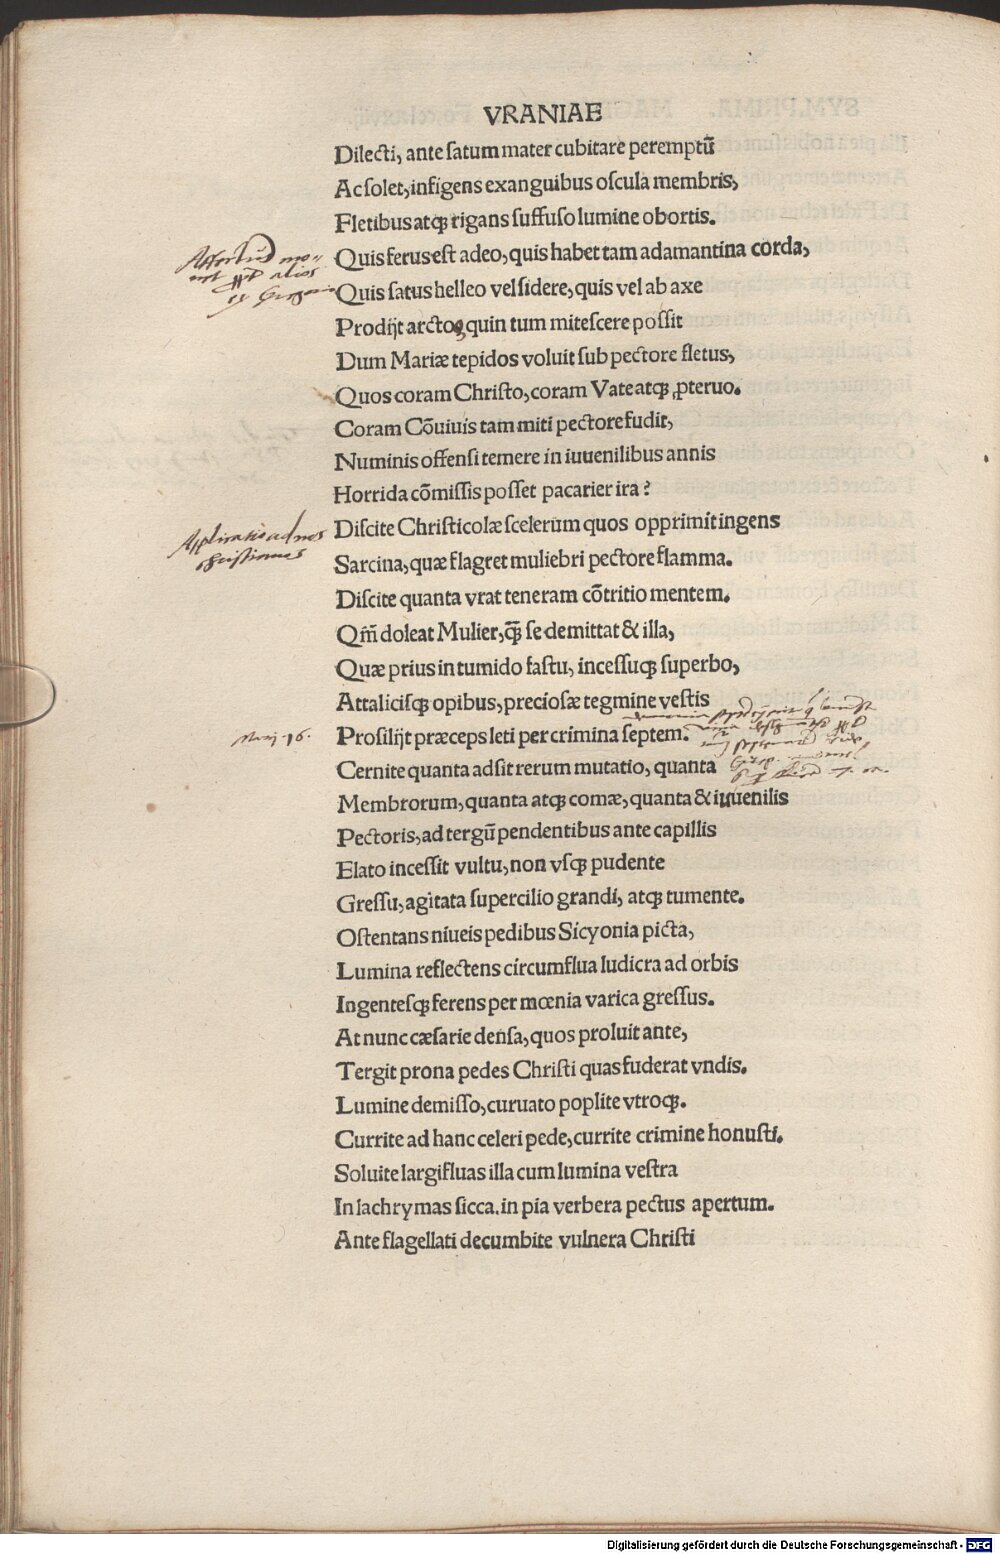 VRANIAE
Dilecti, ante satum mater cubitare peremptū
Ac solet, infigens exanguibus oscula membris,
Fletibus atqꝫ rigans suffuso lumine obortis.
Quis ferus est adeo, quis habet tam adamantina corda,
Quis satus helleo vel sidere, quis vel ab axe
Prodijt arctoo, quin tum mitescere possit
Dum Mariæ tepidos voluit sub pectore fletus,
Quos coram Christo, coram Vate atqꝫ ꝓteruo.
Coram Cōuiuis tam miti pectore fudit,
Numinis offensi temere in iuuenilibus annis
Horrida cōmissis posset pacarier ira?
Applicatio ad nos
Discite Christicolæ scelerum quos opprimit ingens
Sarcina, quæ flagret muliebri pectore flamma.
Discite quanta vrat teneram cōtritio mentem.
Qm̄ doleat Mulier, qꝫ̄ se demittat & illa,
Quæ prius in tumido fastu, incessuqꝫ superbo,
Attalicisqꝫ opibus, preciosæ tegmine vestis
Prosilijt præceps leti per crimina septem.
Cernite quanta adsit rerum mutatio, quanta
Membrorum, quanta atqꝫ comæ, quanta & iuuenilis
Pectoris, ad tergū pendentibus ante capillis
Elato incessit vultu, non vsqꝫ pudente
Gressu, agitata supercilio grandi, atqꝫ tumente.
Ostentans niueis pedibus Sicyonia picta,
Lumina reflectens circumflua ludicra ad orbis
Ingentesqꝫ ferens per mœnia varica gressus.
At nunc cæsarie densa, quos proluit ante,
Tergit prona pedes Christi quas fuderat vndis.
Lumine demisso, curuato poplite vtroqꝫ.
Currite ad hanc celeri pede, currite crimine honusti.
Soluite largifluas illa cum lumina vestra
In lachrymas sicca. in pia verbera pectus apertum.
Ante flagellati decumbite vulnera Christi
Digitalisierung gefördert durch die Deutsche Forschungsgemeinschaft - DFG